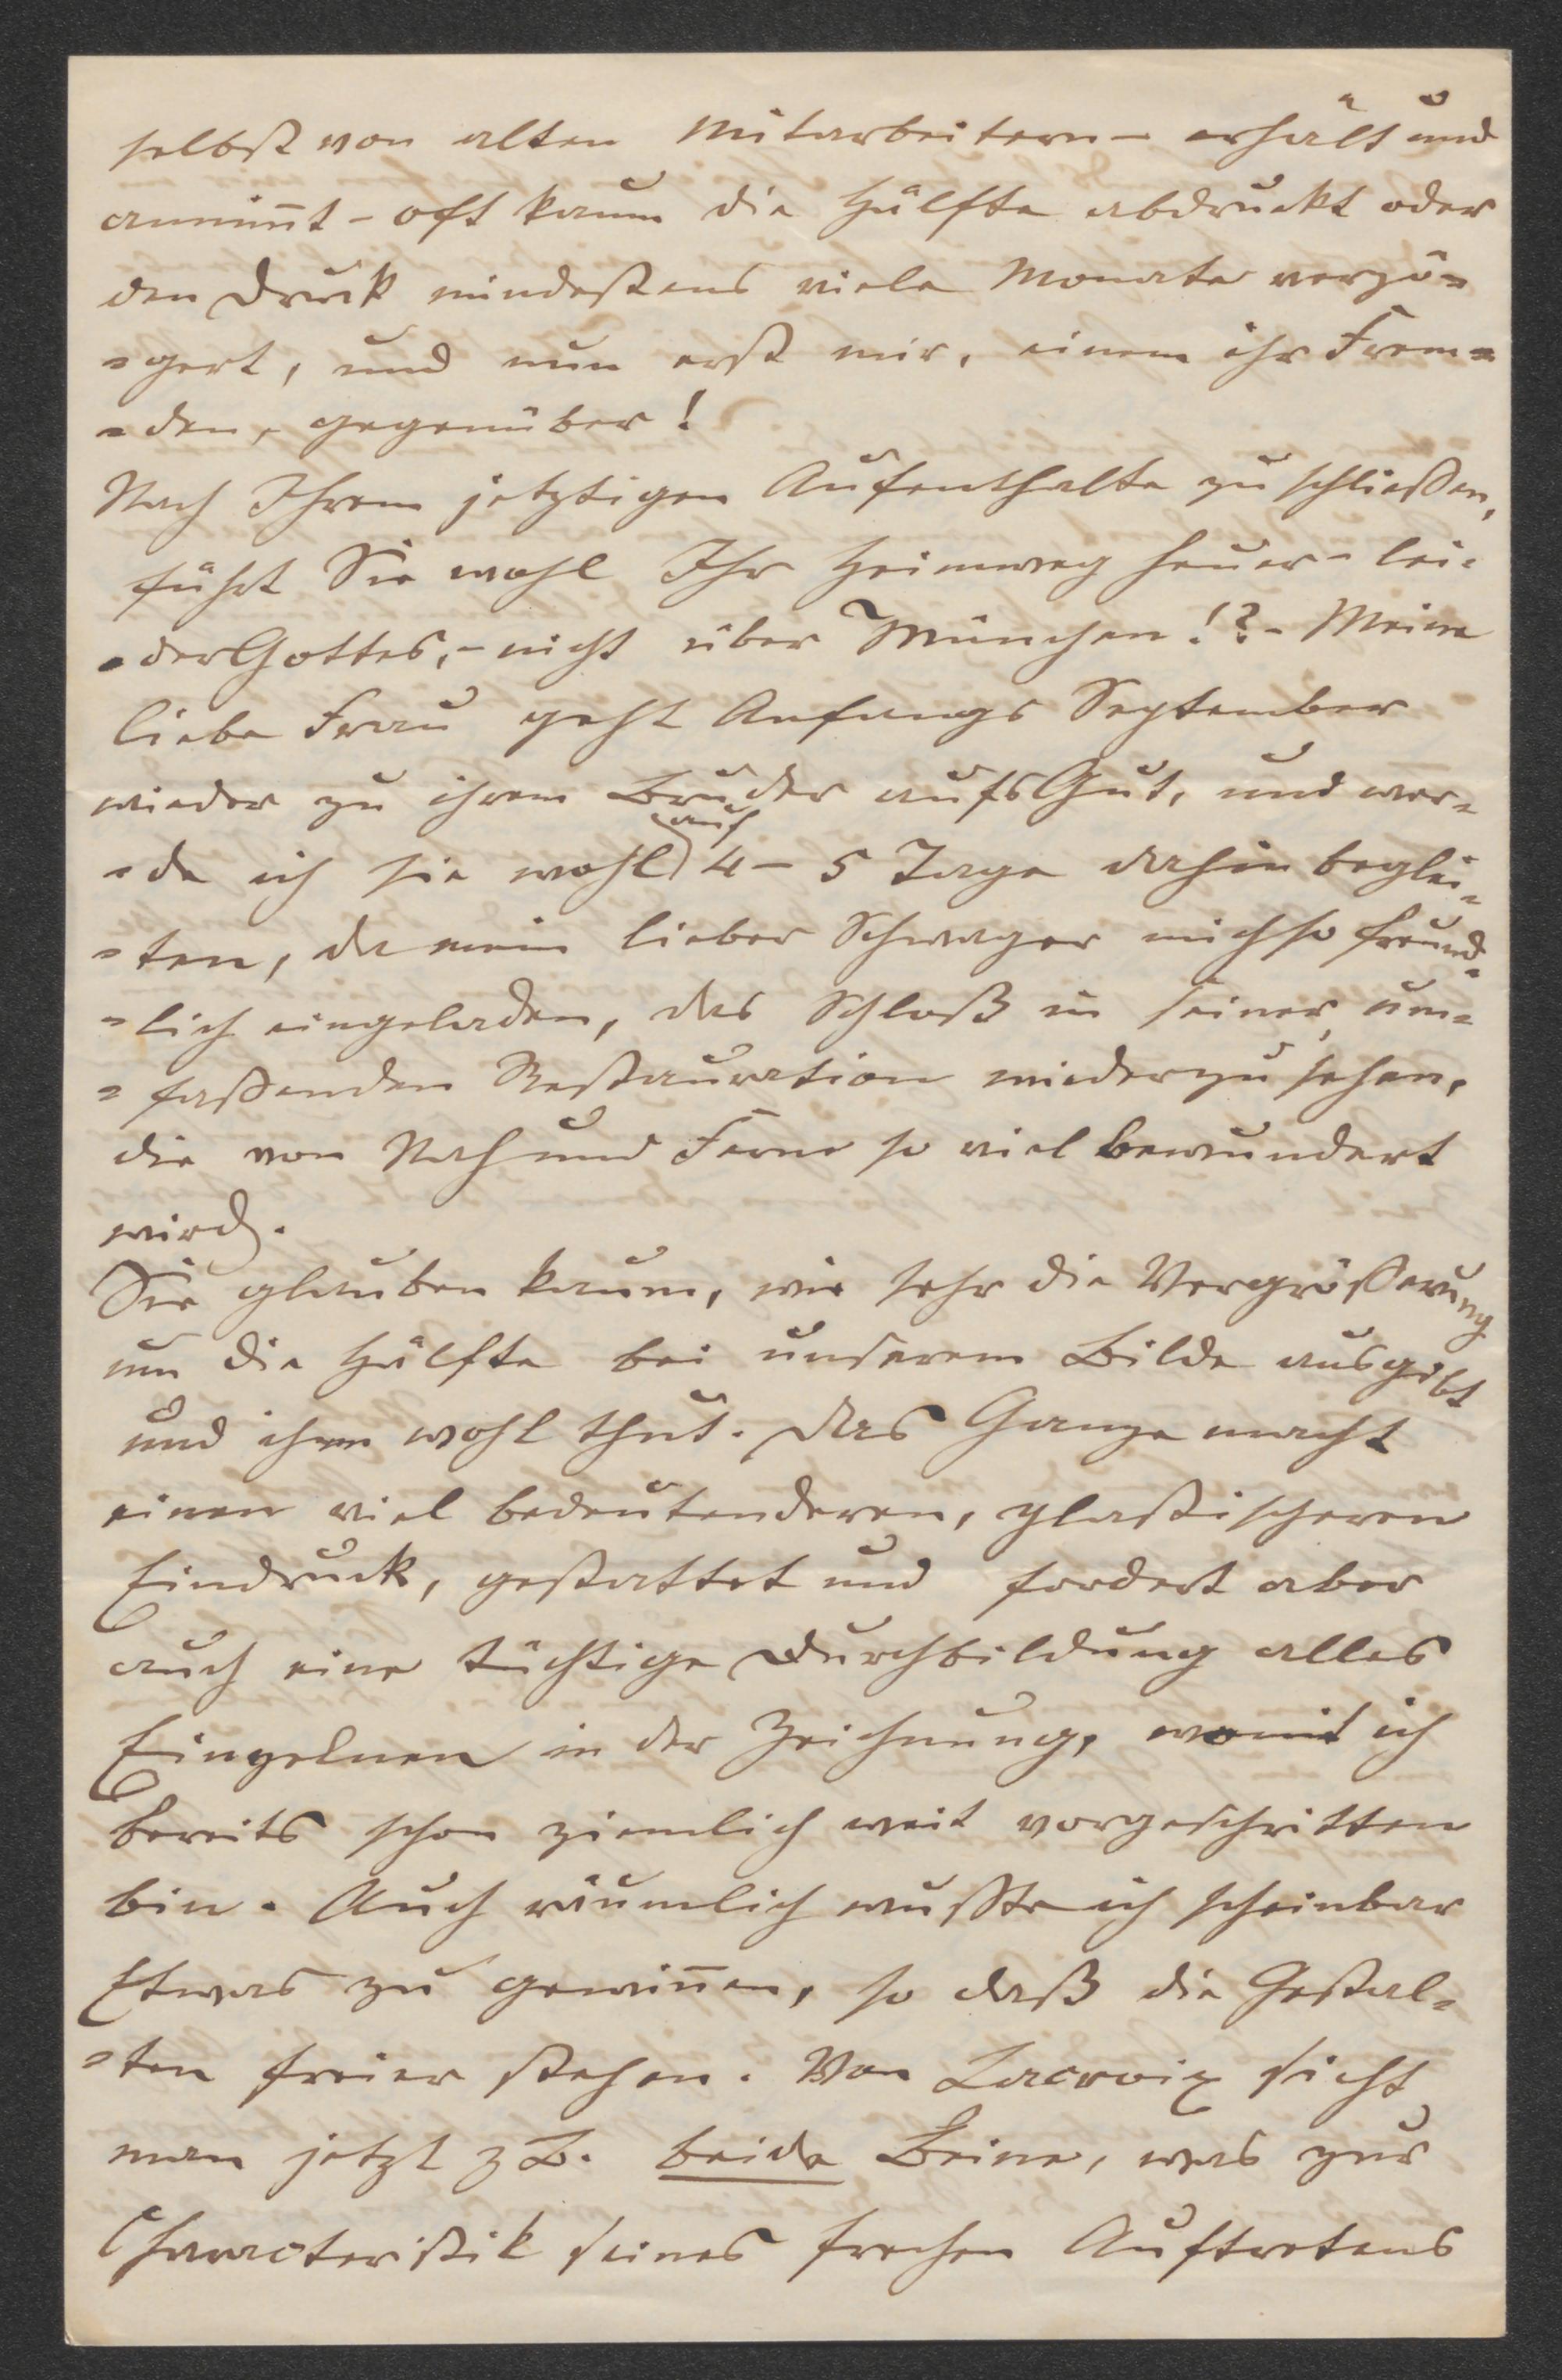 selbst von alten Mitarbeitern - erhält und
annim̄t - oft kaum die Hälfte abdruckt oder
den Druck mindestens viele Monate verzö=
=gert, und nun erst mir, einem ihr Frem=
=den, gegenüber!
Nach Ihrem jetztigen Aufenthalte zu schließen,
führt Sie wohl Ihr Heimweg heuer - lei=
=der Gottes, - nicht über München!? - Meine
liebe Frau geht Anfangs September
wieder zu ihrem Bruder aufs Gut, und wer=
=de ich sie wohl auf 4 - 5 Tage dahin beglei=
=ten, da mein lieber Schwager mich so freund=
=lich eingeladen, das Schloß in seiner um=
=faßenden Restauration wiederzusehen,
die von Nah und Ferne so viel bewundert
wird.
Sie glauben kaum, wie sehr die Vergrößerung
um die Hälfte bei unserem Bilde ausgibt
und ihm wohl thut. Das Ganze macht
einen viel bedeutenderen, plastischeren
Eindruck, gestattet und fordert aber
auch eine tüchtige Durchbildung alles
Einzelnen in der Zeichnung, womit ich
bereits schon ziemlich weit vorgeschritten
bin. Auch räumlich wußte ich scheinbar
Etwas zu gewin̄en, so daß die Gestal=
=ten freier stehen. Von Lacroix sieht
man jetzt z B. beide Beine, was zur
Characteristik seines frechen Auftretens